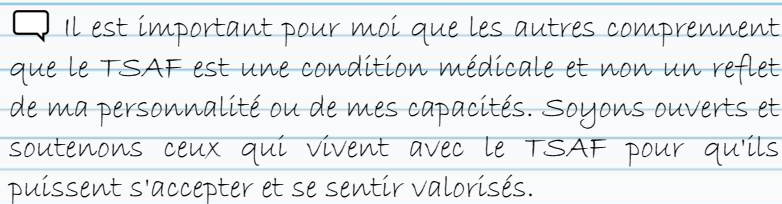 Il est important pour moi que les autres comprennent
que le TSAF est une condition médicale et non un reflet
de ma personnalité ou de mes capacités. Soyons ouverts et
soutenons ceux qui vivent avec le TSAF pour qu'ils
puissent s'accepter et se sentir valorisés.